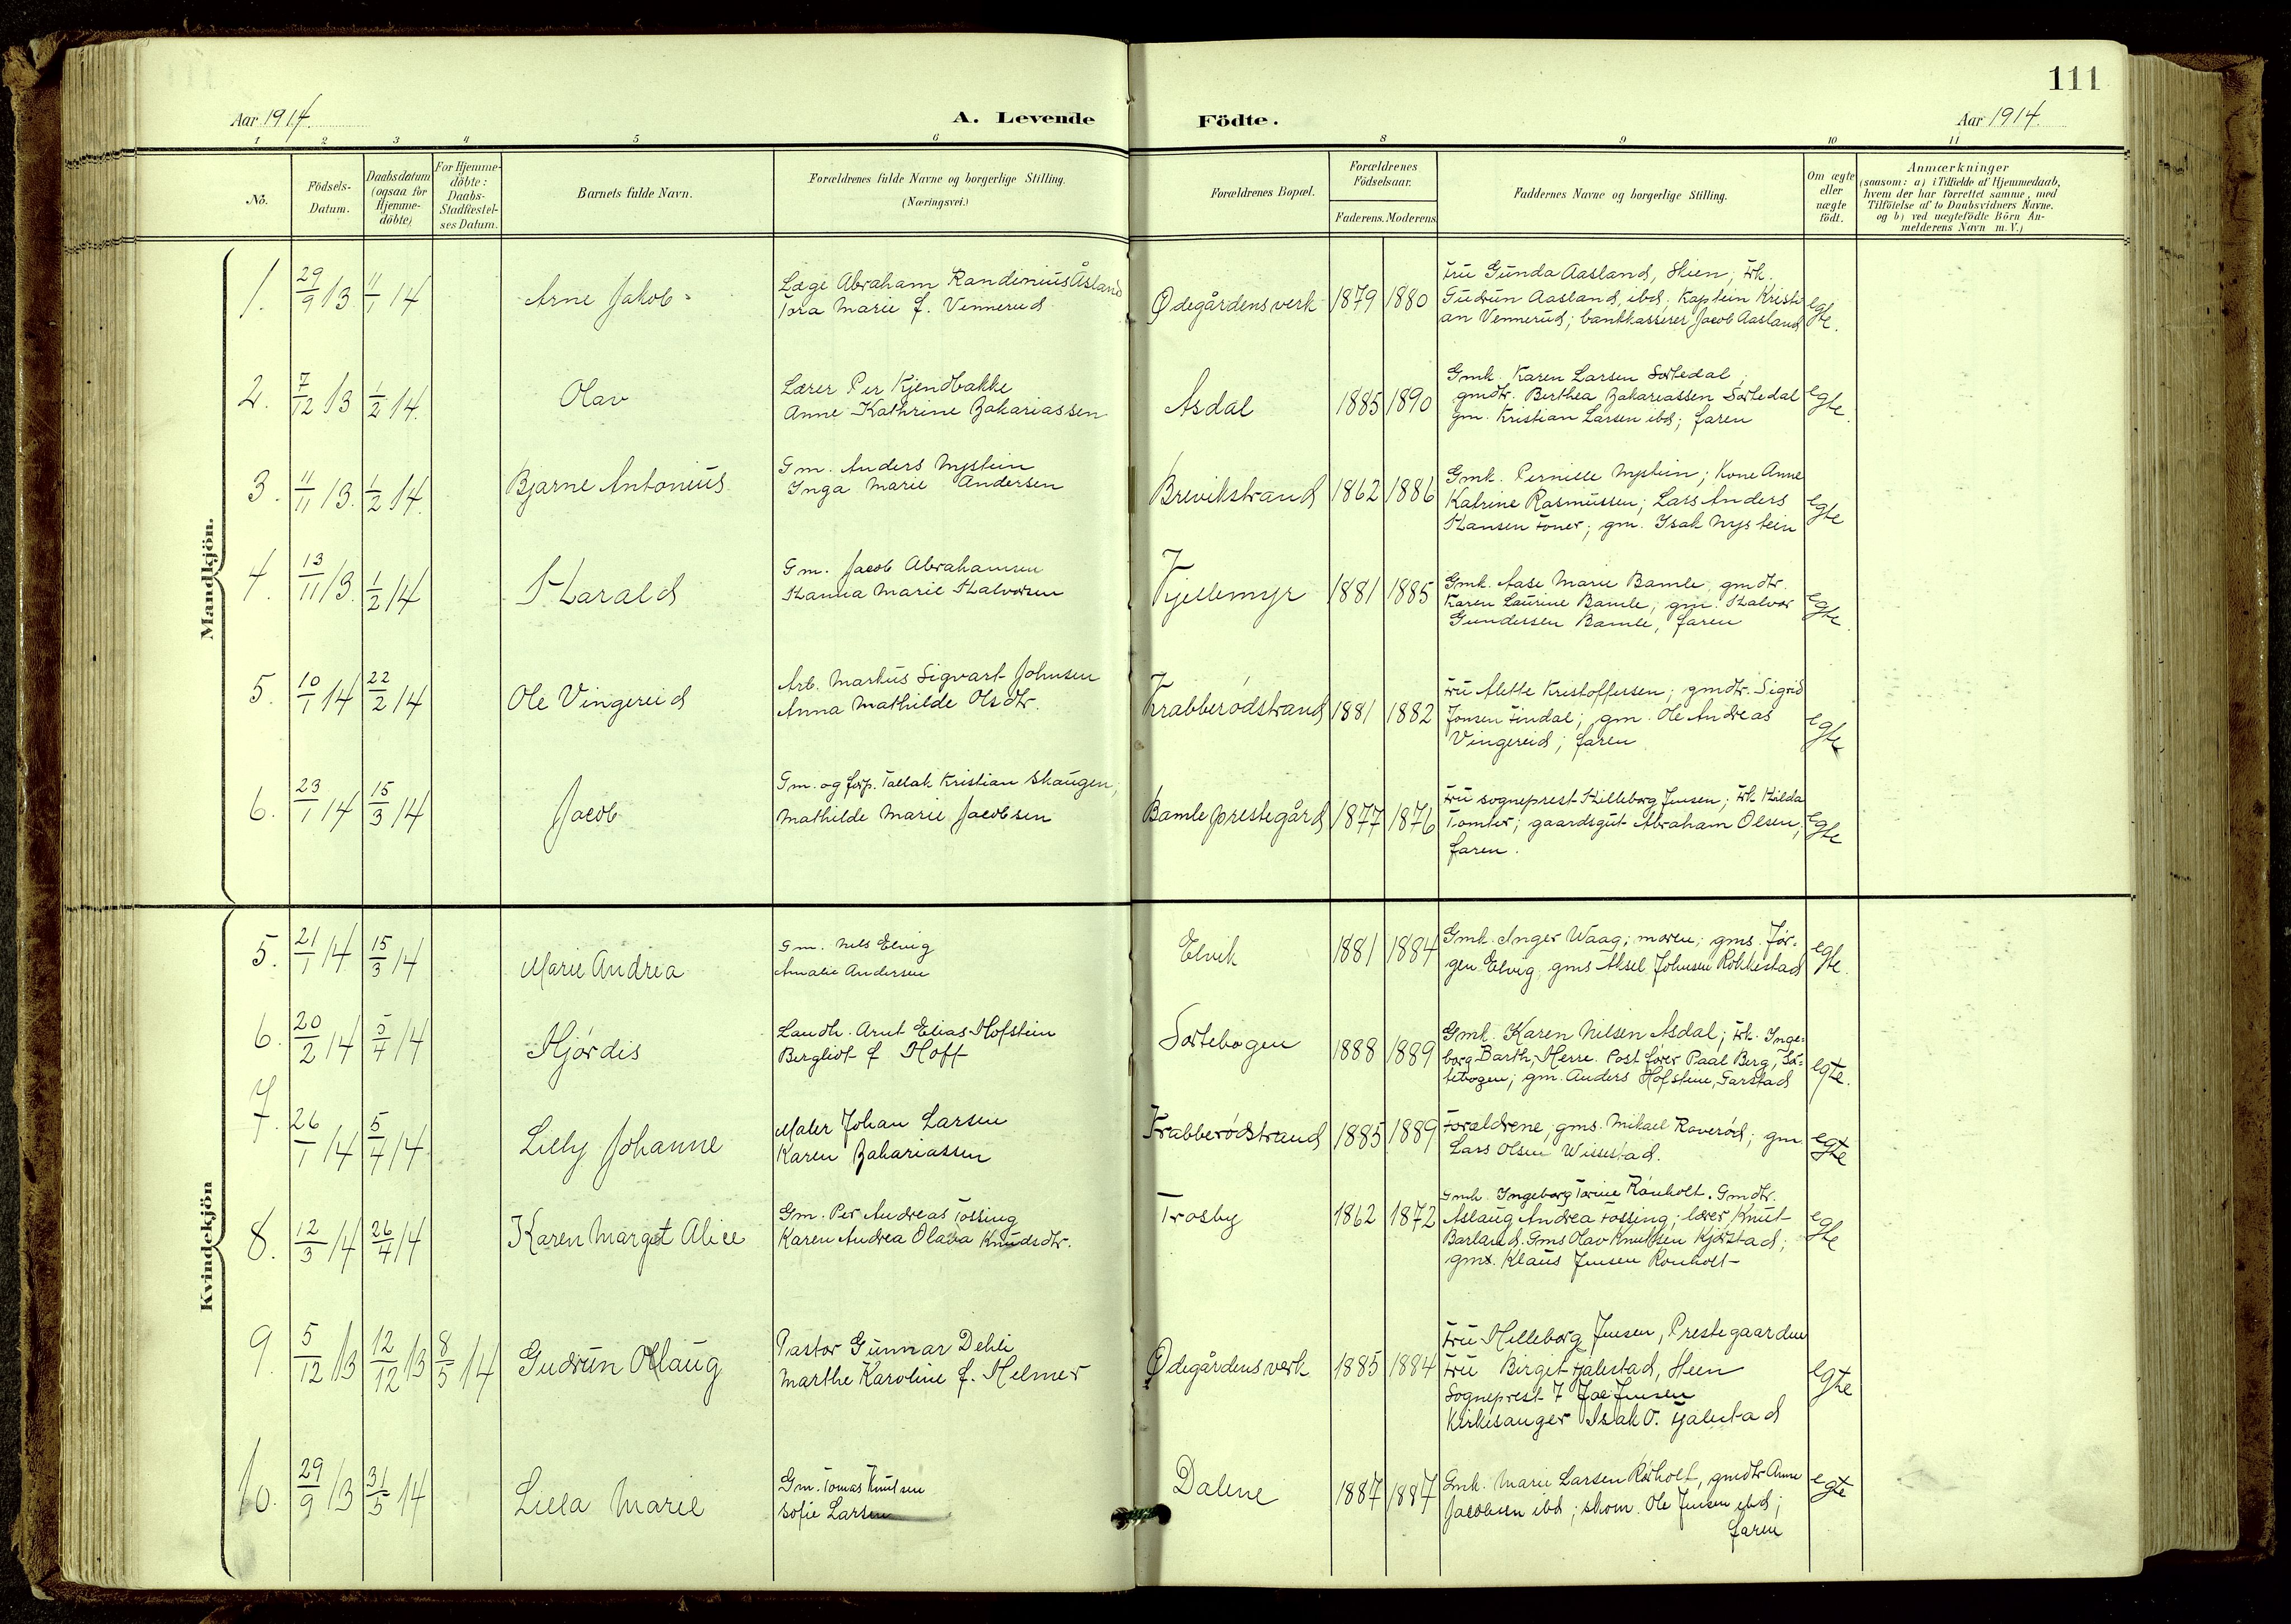 111
Aar 1914.
A. Levende
Födte.
Aar 1914
1 2 3 4 5 6 8 9 10 11
No.
Födsels-
Datum.
Daabsdatum
(ogsaa for
Hjemme-
döbte)
For Hjemme-
döbte:
Daabs-
Stadfæstel-
ses Datum.
Barnets fulde Navn.
Forældrenes fulde Navne og borgerlige Stilling.
(Næringsvei.)
Forældrenes Bopæl.
Forældrenes
Födselsaar.
Faderens. Moderens
Faddernes Navne og borgerlige Stilling.
Om ægte
eller
uægte
födt.
Anmærkninger
(saasom: a) i Tilfælde af Hjemmedaab,
hvem der har forrettet samme, med
Tilföielse af to Daabsvidners Navne.
og b) ved uægtefödte Börn An-
melderens Navn m.V.)
Mandkjön.
1. 29/9 13 11/1 14
Arne Jakob
Læge Abraham Randinius Åsland
Tora Marie f. Vennerud
Ødegårdensverk 1879 1880
Fru Gunda Aasland, Skien; Frk.
Gudrun Aasland, ibd; Kaptein Kristi
an Vennerud; bankkasserer Jacob Aasland
egte.
2. 7/12 13 1/2 14.
Olav
Lærer Per Kjendbakke
Anne Kathrine Zakariassen
Asdal 1885 1890
Gmk. Karen Larsen Sortedal,
gmdtr. Berthea Zakareassen Sortedal
gm. Kristian Larsen ibd; faren
egte.
3. 11/11 13. 1/2 14.
Bjarne Antonius
Gm. Anders Nystein
Inga Marie Andersen
Brevikstrand 1862 1886
Gmk. Pernille Nystein; Kone Anne
Katrine Rasmussen; Lars Anders
Hansen Foner; gm. Isak Nystein
egte
4. 13/11 13. 1/2 14
Harald
Gm. Jacob Abrahamsen
Hanna Marie Halvorsen
Kjellemyr 1881 1885
Gmk. Aase Marie Bamle, gmdtr.
Karen Laurine Bamle; gm. Halvor
Gundersen Bamle, faren
egte.
5. 10/1 14 22/2 14
Ole Vingereid
Arb. Markus Sigvart Johnsen
Anna Mathilde Olsdtr.
Krabberødstrand 1881 1882
Fru Alette Kristoffersen; gmdtr. Sigrid
Jonsen Findal; gm. Ole Andreas
Vingereid; faren
egte
6. 23/1 14 15/3 14
Jacob
Gm. og forp. Tallak Kristian Skaugen,
Mathilde Marie Jacobsen
Bamle prestegård 1877 1876
Fru sogneprest Hilleborg Jensen; Frk. Hilda
Tomter; gaardsgut Abraham Olsen;
faren.
egte
Kvindekjön
5. 21/1 14 15/3 14
Marie Andrea
Gm. Nils Elvig
Amalie Andersen
Elvik 1881 1884
Gmk. Inger Waag; moren; gms. Jør-
gen Elvig, gms Aksel Johnsen Rokkestad
egte.
6. 20/2 14 5/4 14
Hjørdis
Landh. Arnt Elias Hofstein
Bergliot f Hoff
Sortebogen 1888 1889
Gmk. Karen Nilsen Asdal; Frk. Inge-
borg Barth, Herre. Postfører Paal Berg, Sor-
tebogen; gm. Anders Hofstein, Garstad
egte.
7. 26/1 14 5/4 14
Lilly Johanne
Maler Johan Larsen
Karen Zakariassen
Krabberødstrand 1885 1889
Forældrene; gms. Mikael Raverød; gm
Lars Olsen Wissestad.
egte
8. 12/3 14 26/4 14
Karen Margot Alice
Gm. Per Andreas Fossing
Karen Andrea Olava Knudsdtr.
Trosby 1862 1872
Gmk. Ingeborg Torine Rønholt. Gmdtr.
Aslaug Andrea Fossing; lærer Knut
Barland. Gms Olav Knutsen Kjørstad;
gms. Klaus Jensen Rønholt
egte
9. 5/12 13 12/12 13 8/5 14
Gudrun Ollaug
Pastor Gunnar Dehli
Marthe Karoline f. Helmer
Ødegårdensverk 1885 1884
Fru Hilleborg Jensen, Prestegaarden
Fru Birget Fjalestad, Skien
Sogneprest Jensen
Kirkesanger Isak O. Fjalestad
egte
10. 29/9 13 31/5 14
Lilla Marie
Gm. Tomas Knutsen
Sofie Larsen
Dalene 1887 1887
Gmk. Marie Larsen Rørholt, gmdtr Anne
Jacobsen ibd; skom. Ole Jensen ibd;
faren
egte